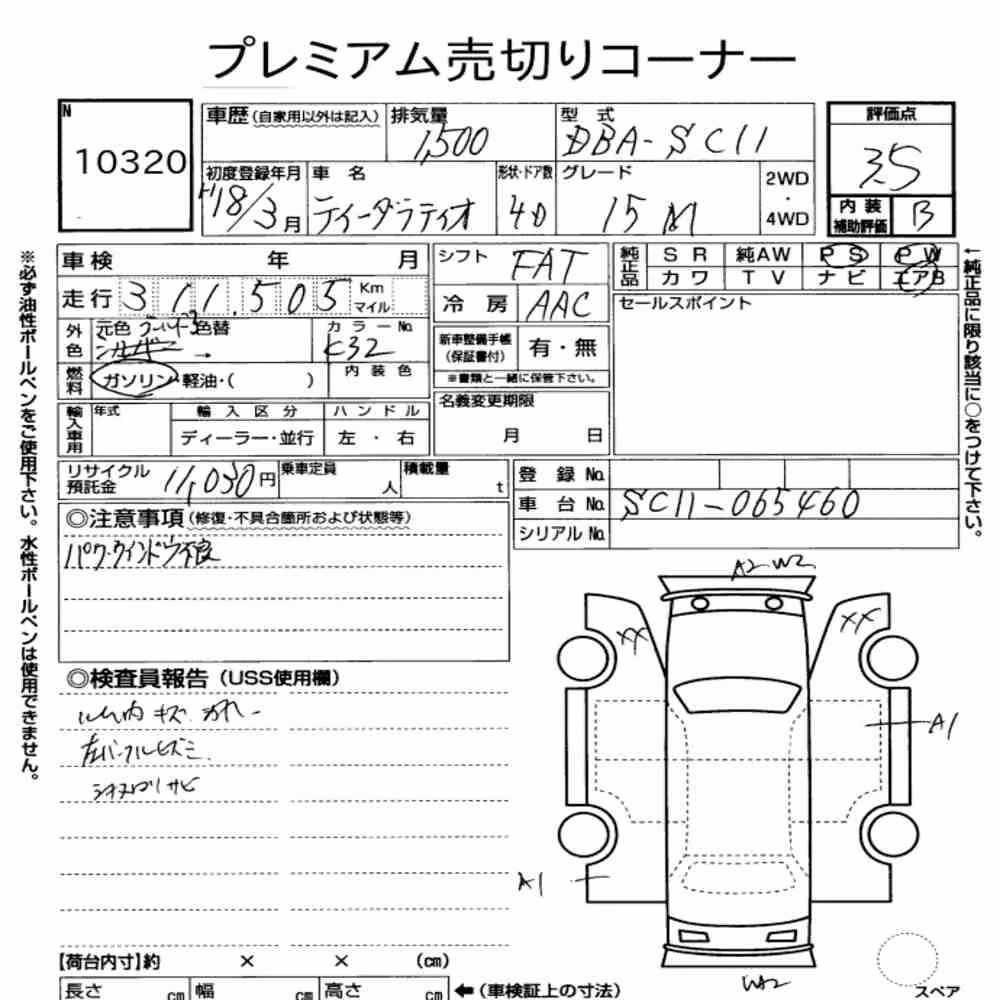 プレミアム売切りコーナー
N
10320
車歴(自家用以外は記入)
排気量
1,500
型 式
DBA-SC11
評価点
3.5
初度登録年月
H18/3月
車 名
ティーダラティオ
形状・ドア数
4D
グレード
15M
2WD
・
4WD
内 装
補助評価
B
※必ず油性ボールペンをご使用下さい。水性ボールペンは使用できません。
車検 年 月
走行 311,505 Km マイル
外色
元色 色替
→
カラーNo.
K32
燃料
ガソリン・軽油・( )
内装色
輸入車用
年式
輸入区分
ディーラー・並行
ハンドル
左・右
シフト
FAT
冷房
AAC
新車整備手帳
(保証書付)
有・無
※書類と一緒に保管下さい。
名義変更期限
月 日
純正品
SR 純AW PS PW
カワ TV ナビ エアB
セールスポイント
←純正品に限り該当に○をつけて下さい。
リサイクル
預託金
11,030円
乗車定員
人
積載量
t
登録No.
車台No.
SC11-065460
シリアルNo.
◎注意事項(修復・不具合箇所および状態等)
パワーウインドウ不良
◎検査員報告(USS使用欄)
ルーム内 キズ 汚れ
シタマワリサビ
A2 W2
XX
XX
A1
A1
W2
【荷台内寸】約 × × (cm)
長さ cm 幅 cm 高さ cm
←(車検証上の寸法)
スペア